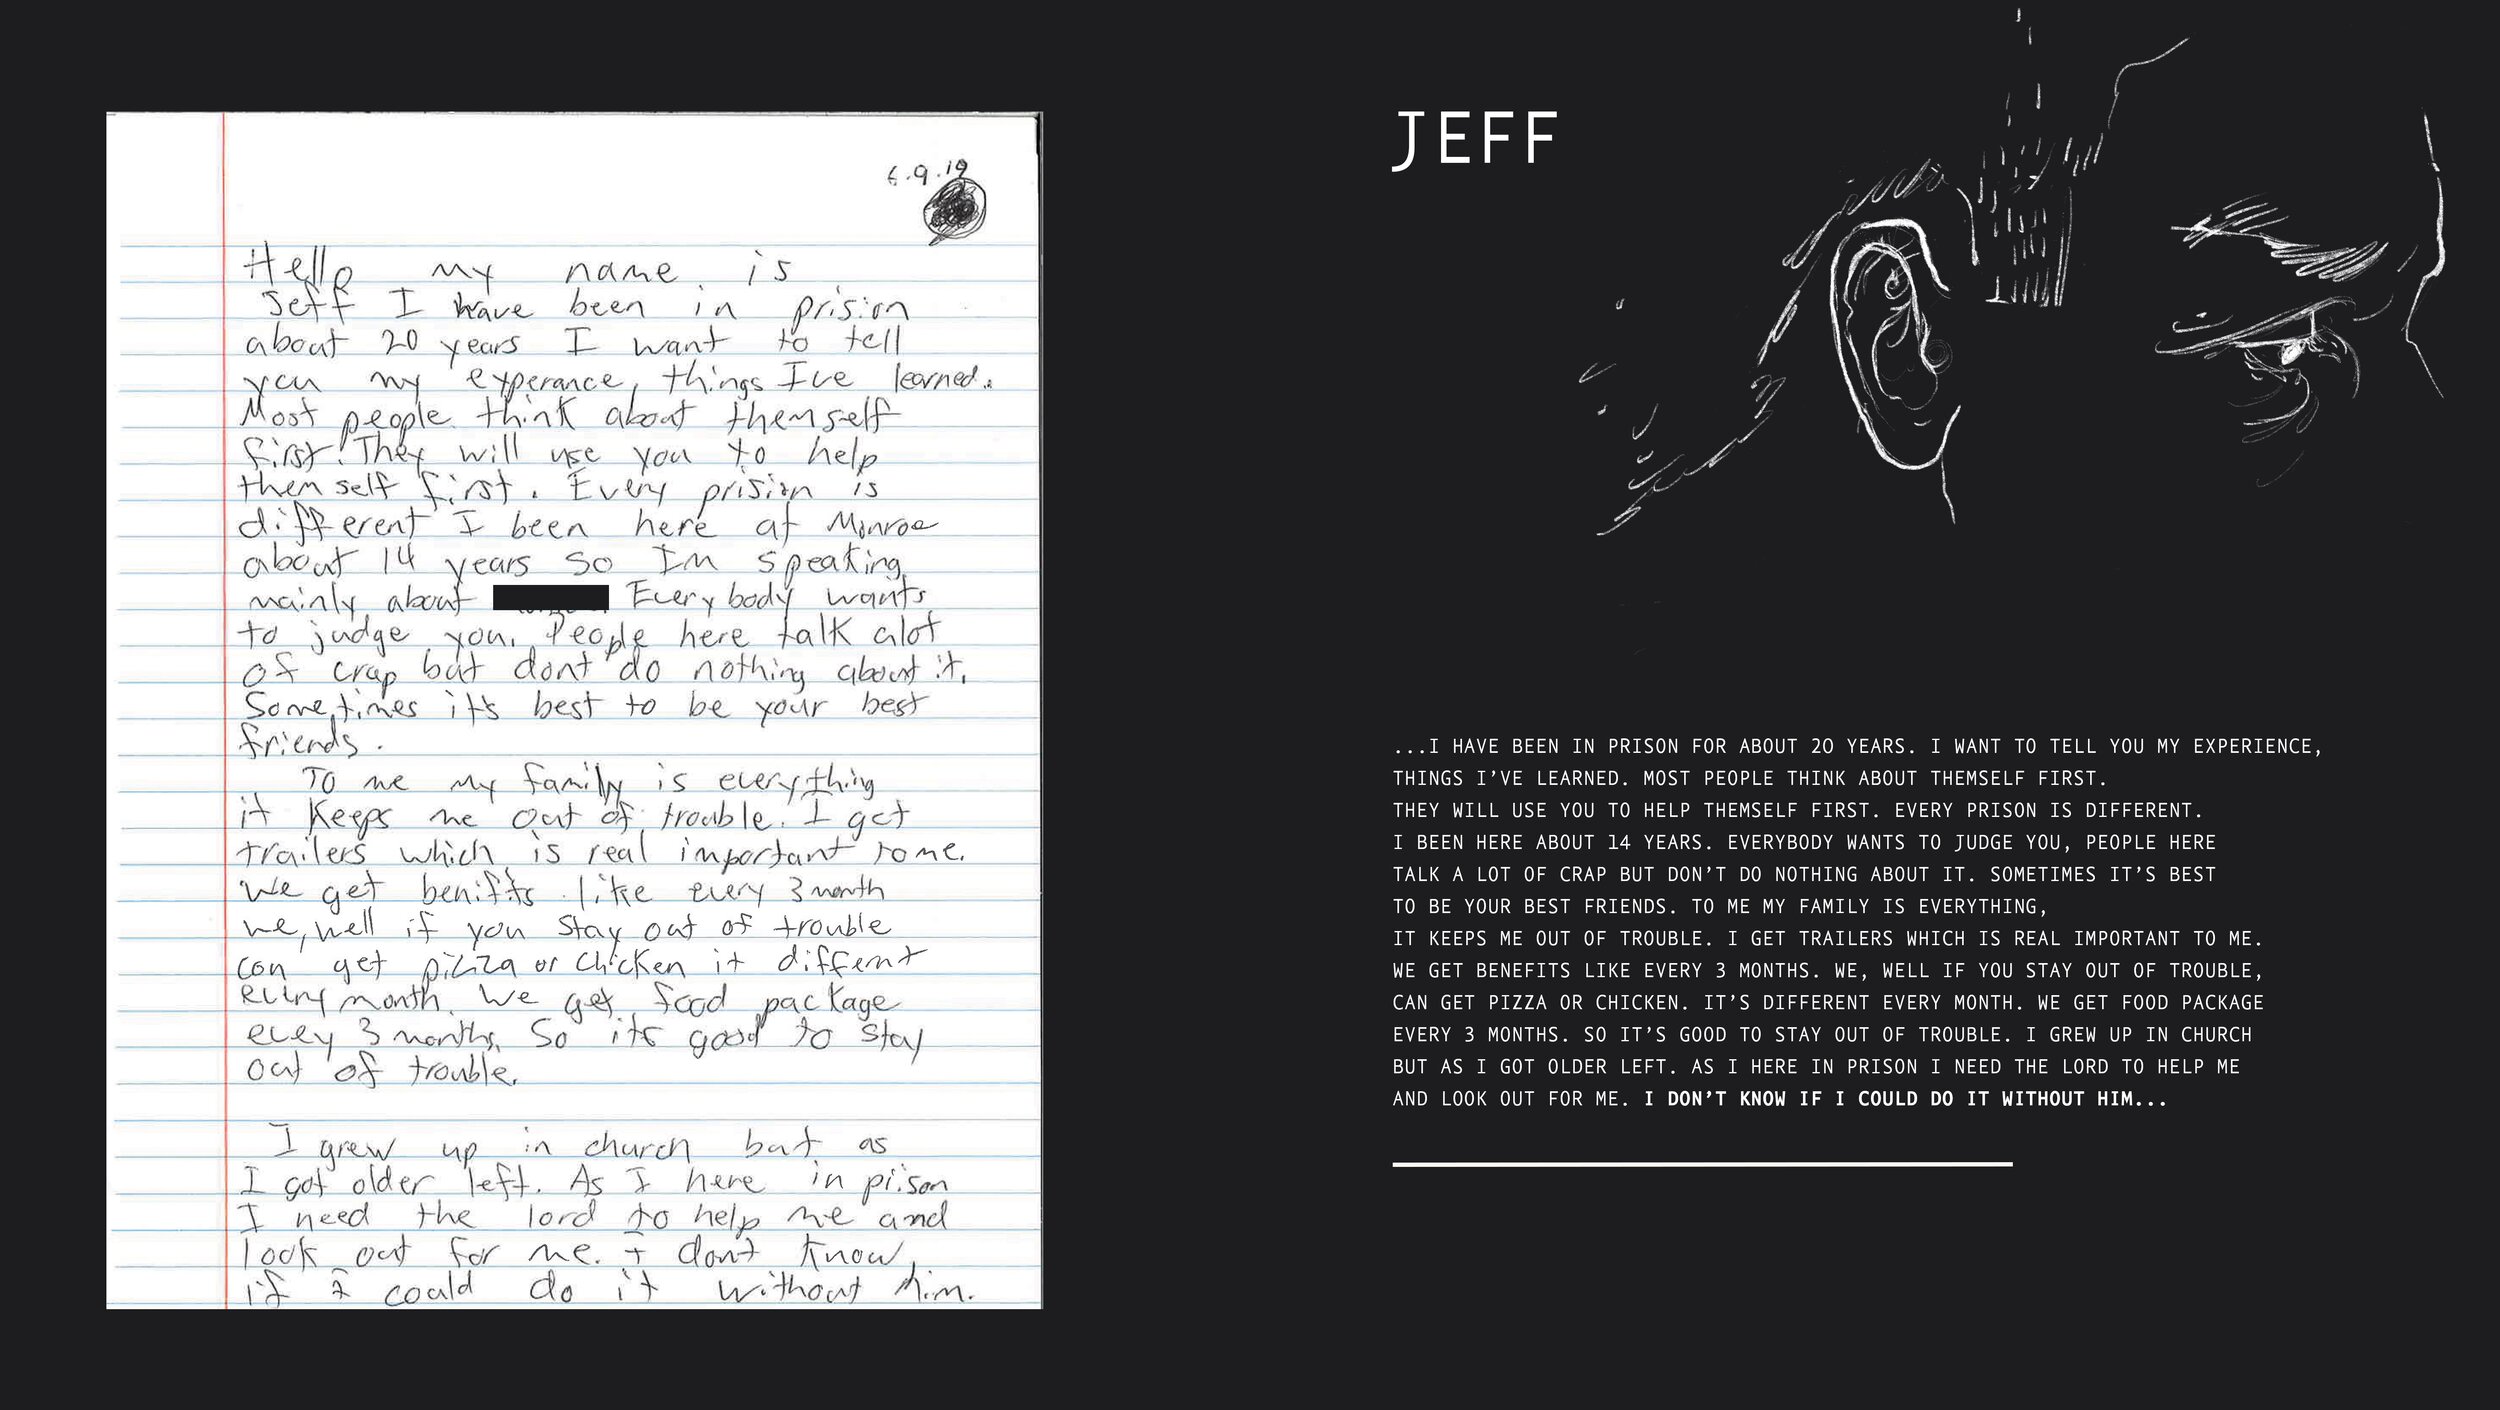 6.9.19
Hello my name is
Jeff I have been in prision
about 20 years I want to tell
you my experance, things Ive learned.
Most people think about themself
first! They will use you to help
themself first. Every prision is
different I been here at Monroe
about 14 years so Im speaking
mainly about Everybody wants
to judge you. People here talk alot
of crap but dont do nothing about it.
Sometimes it's best to be your best
friends.
To me my family is everything
it keeps me out of trouble. I get
trailers which is real important to me.
We get benifits like every 3 month
we, well if you stay out of trouble
con get pizza or chicken it differnt
every month. We get food package
evey 3 months. So its good to stay
out of trouble.
I grew up in church but as
I got older left. As I here in prison
I need the lord to help me and
look out for me. I dont know
if I could do it without him.
JEFF
...I HAVE BEEN IN PRISON FOR ABOUT 20 YEARS. I WANT TO TELL YOU MY EXPERIENCE,
THINGS I'VE LEARNED. MOST PEOPLE THINK ABOUT THEMSELF FIRST.
THEY WILL USE YOU TO HELP THEMSELF FIRST. EVERY PRISON IS DIFFERENT.
I BEEN HERE ABOUT 14 YEARS. EVERYBODY WANTS TO JUDGE YOU, PEOPLE HERE
TALK A LOT OF CRAP BUT DON'T DO NOTHING ABOUT IT. SOMETIMES IT'S BEST
TO BE YOUR BEST FRIENDS. TO ME MY FAMILY IS EVERYTHING,
IT KEEPS ME OUT OF TROUBLE. I GET TRAILERS WHICH IS REAL IMPORTANT TO ME.
WE GET BENEFITS LIKE EVERY 3 MONTHS. WE, WELL IF YOU STAY OUT OF TROUBLE,
CAN GET PIZZA OR CHICKEN. IT'S DIFFERENT EVERY MONTH. WE GET FOOD PACKAGE
EVERY 3 MONTHS. SO IT'S GOOD TO STAY OUT OF TROUBLE. I GREW UP IN CHURCH
BUT AS I GOT OLDER LEFT. AS I HERE IN PRISON I NEED THE LORD TO HELP ME
AND LOOK OUT FOR ME. I DON'T KNOW IF I COULD DO IT WITHOUT HIM...